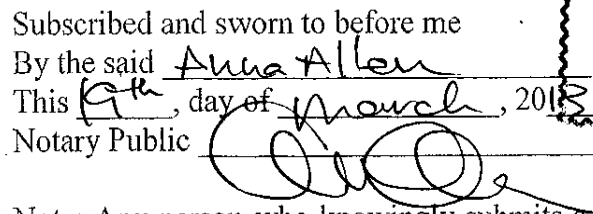 Subscribed and sworn to before me
By the said Anna Allen
This 19th, day of March, 2013
Notary Public
Note: Any person who knowingly submits a